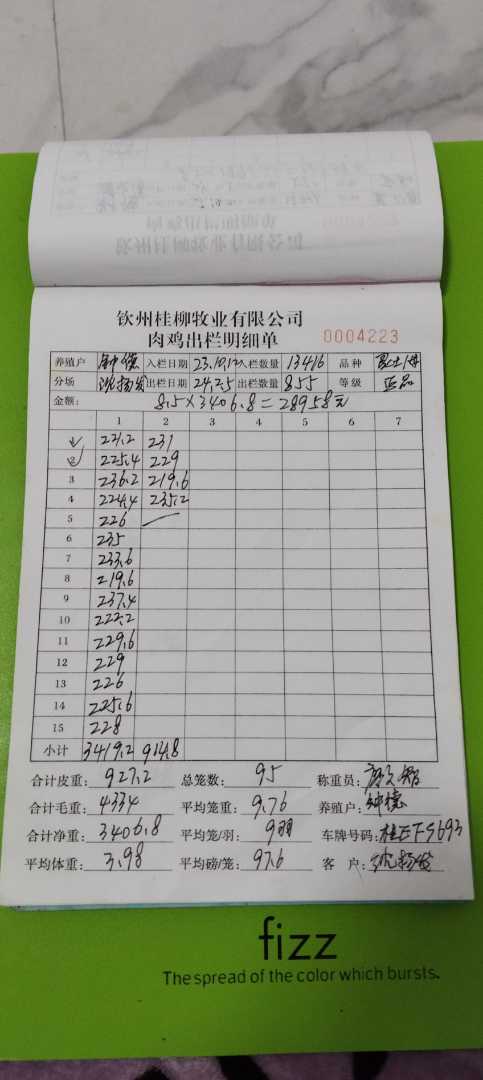 钦州桂柳牧业有限公司
肉鸡出栏明细单 0004223
养殖户 钟德 入栏日期 23.10.12 入栏数量 13416 品种
分场 沈扬发 出栏日期 24.2.5 出栏数量 855 等级 正品
金额: 8.5×3406.8=28958元
1 2 3 4 5 6 7
1 221.2 231
2 225.4 229
3 236.2 219.6
4 224.4 235.2
5 226
6 235
7 233.6
8 219.6
9 237.4
10 222.2
11 229.6
12 229
13 226
14 225.6
15 228
小计 3419.2 914.8
合计皮重: 927.2 总笼数: 95 称重员:
合计毛重: 4334 平均笼重: 9.76 养殖户: 钟德
合计净重: 3406.8 平均笼/羽: 9羽 车牌号码: 桂EFS693
平均体重: 3.98 平均磅/笼: 97.6 客 户: 沈扬发
fizz
The spread of the color which bursts.